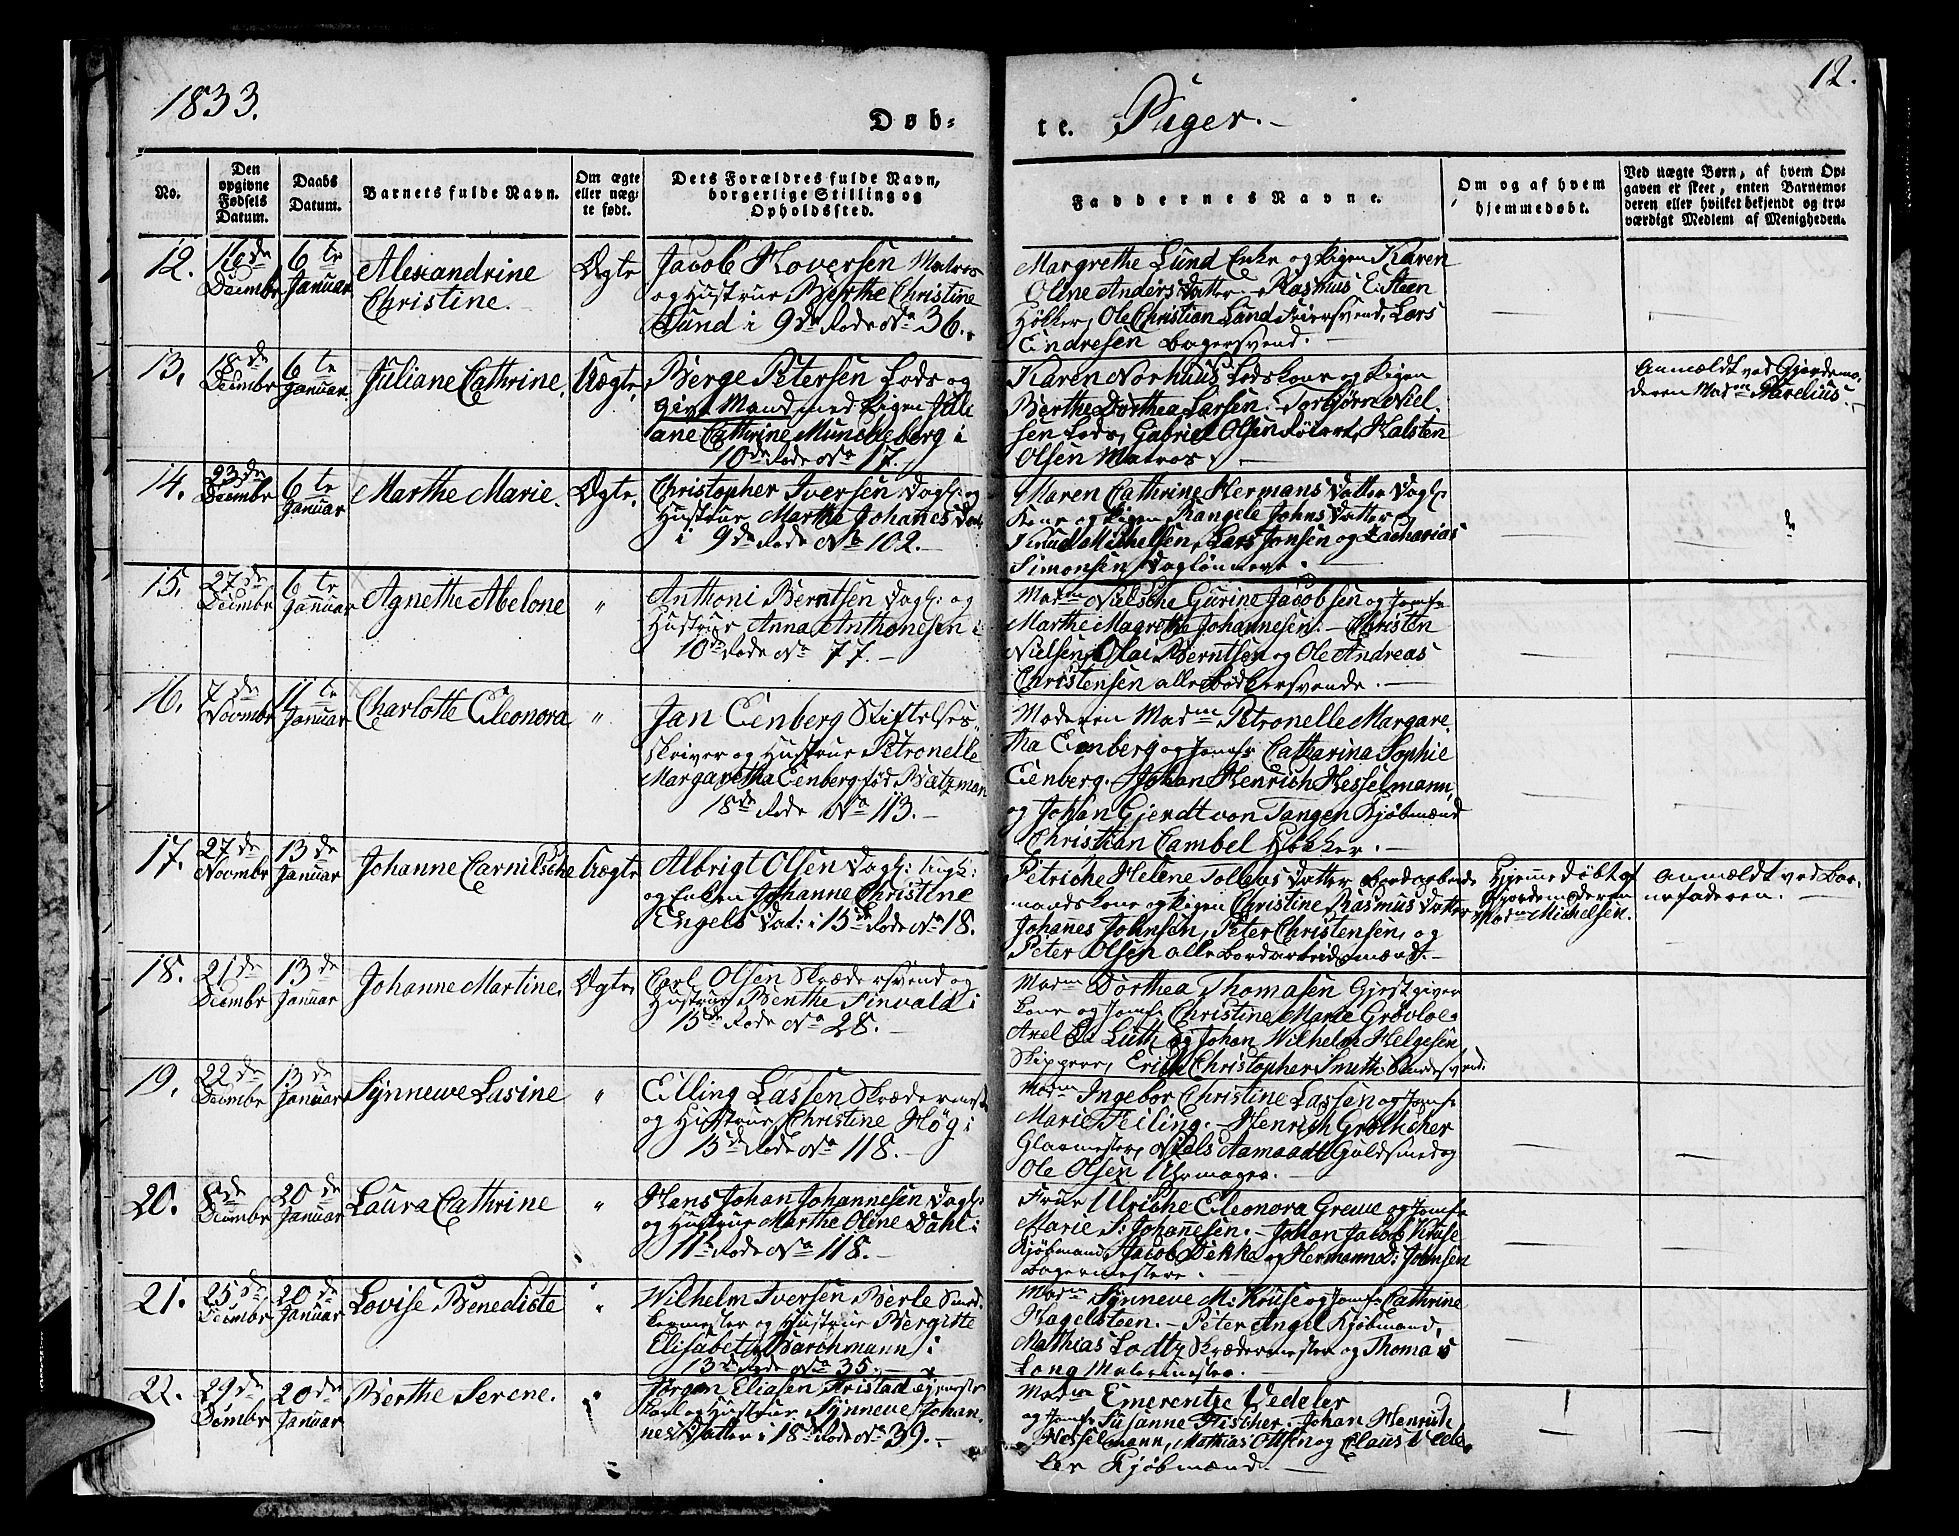 1833.
12.
Døb-
te. Piger.
No.
Den opgivne Fødsels Datum.
Daabs Datum.
Barnets fulde Navn.
Om ægte eller uægte født.
Dets Forældres fulde Navn, borgerlige Stilling og Opholdssted.
Faddernes Navne.
Om og af hvem hjemmedøbt.
Ved uægte Børn, af hvem Opgaven er skeet, enten Barnemoderen eller hvilket bekjendt og troværdigt Medlem af Menigheden.
12. 16de Decembr 6te Januar Alexandrine Christine. Ægte
Jacob Hoversen Matros
og Hustrue Berthe Christine
Lund i 9de Rode No 36.
Margrethe Lund Enke og Pigen Karen
Oline Andersdatter. Rasmus Esteen
Høker, Ole Christian Lund Feiersvend, Lars
Endresen Bagersvend.
13. 18de Decembr 6te Januar Juliane Cathrine. Uægte.
Berge Petersen Lods og
givt Mand med Pigen Juli
ane Cathrine Müncheberg i
10de Rode No 17.
Karen Norhuus Lodskone og Pigen
Berthe Dorthea Larsen. Torbjørn Niel
sen Lods, Gabriel Olsen, Halsten
Olsen Matros.
Anmeldt ved Gjordemo-
deren Madm Marelius.
14. 23de Decembr 6te Januar Marthe Marie. Ægte.
Christopher Iversen Dagl: og
Hustrue Marthe Johanesdat
i 9de Rode No 102.
Maren Cathrine Hermansdatter Dagl:
Kone og Pigen Rangele Johnsdatter
Knud Michelsen, Lars Jensen og Zacharias
Simonsen Daglønnere.
15. 27de Decembr 6te Januar Agnethe Abelone "
Anthoni Berntsen Dagl: og
Hustrue Anna Anthonesen i
10de Rode No 77.
Madm Nielsche Gurine Jacobsen og Jomfr
Marthe Magrethe Johannesen. Christen
Nielsen, Olai Berntsen og Ole Andreas
Christensen alle Bødkersvende.
16. 7de Novmbr 11te Januar Charlotte Eleonora "
Jan Eenberg Stiftelses
skriver og Hustrue Petronelle
Margaretha Eenberg fød Batzman
18de Rode No 113.
Moderen Madm Petronelle Margare
tha Eenberg og Jomfr Catharina Sophie
Eenberg. Johan Henrich Hesselmann,
og Johan Gjerdt von Tangen Kjøbmænd
Christian Cambel Høkker.
17. 27de Novmbr 13de Januar Johanne Carnilsche Uægte
Albrigt Olsen Dagl:
og Enken Johanne Christine
Engelsdat: i 15de Rode No 18.
Petriche Helene Tolleusdatter Bordarbeids
mands Kone og Pigen Christine Rasmusdatter
Johanes Johnsen, Peter Christensen, og
Peter Olsen alle Bordarbeidsmænd.
Hjemmedøbt af
Gjordemoderen
Madm Michelsen.
Anmeldt ved Bar-
nefaderen.
18. 21de Decembr 13de Januar Johanne Martine. Ægte.
Carl Olsen Skrædersvend og
Hustrue Benthe Finvald i
15de Rode No 28.
Madm Dorthea Thomasen Gjestgiver
Kone og Jomfr Christine Marie Grovloe
Axel Luth og Johan Wilhelm Helgesen
Skippere, Erich Christopher Smith
19. 22de Decembr 13de Januar Synnewe Lasine "
Eilling Lassen Skrædermest
og Hustrue Christine Høg i
15de Rode No 118.
Madm Ingebor Christine Lassen og Jomfr
Marie Feiling. Henrich Groticher
Glarmester, Niels Aamaadt Guldsmed og
Ole Olsen Uhrmager.
20. 8de Decembr 20de Januar Laura Cathrine "
Hans Johan Johannesen Dagl:
og Hustrue Marthe Oline Dahl i
11te Rode No 118.
Frue Ulriche Eleonora Greve og Jomfr
Marie S: Johanesen. Johan Jacob Kruse
Kjøbmand, Jacob Dekke og Hermann D: Johnsen
Bagermestere.
21. 25de Decembr 20de Januar Lovise Benedicte "
Wilhelm Iversen Berle Sned
kermester og Hustrue Bergitte
Elisabeth Barchmann i
13de Rode No 35.
Madm Synneve M: Kruse og Jomfr Cathrine
Hagelsteen. Peter Angel Kjøbmand,
Mathias Lodtz Skrædermester og Thomas
Long Malermester.
22. 29de Decmbr 20de Januar Berthe Serene. "
Jørgen Eliasen Fristad
Karl og Hustrue Synneve Johan
nesdatter i 18de Rode No 39.
Madm Emerentze Vedeler
og Jomfr Susanne Fischer. Johan Henrich
Hesselmann, Mathias Ottsen og Claus Vede
ler Kjøbmænd.